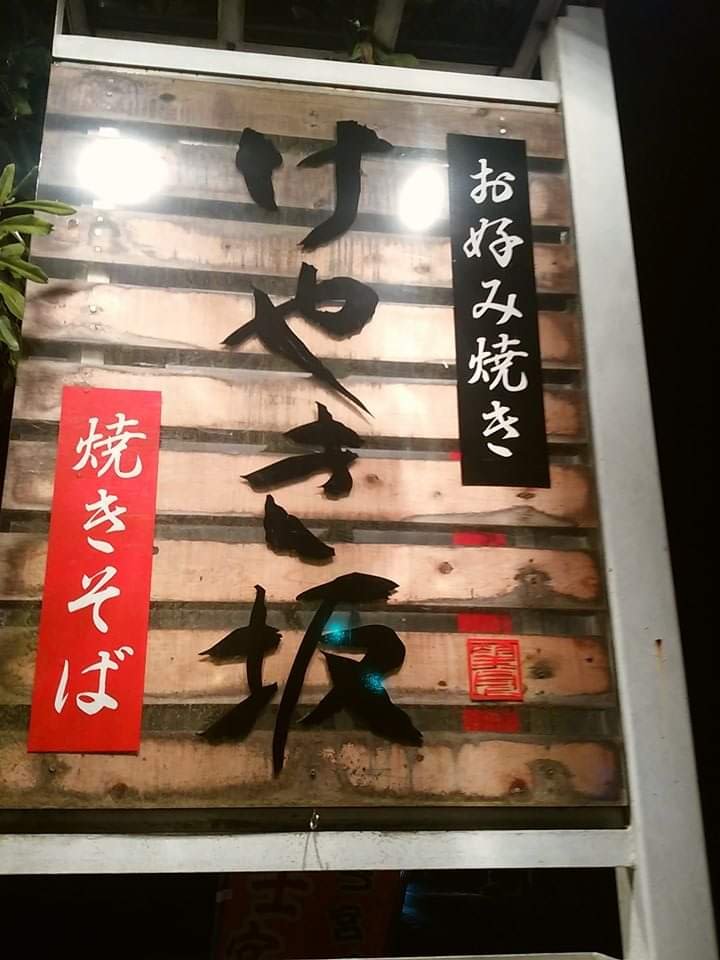 お好み焼き
けやき坂
焼きそば